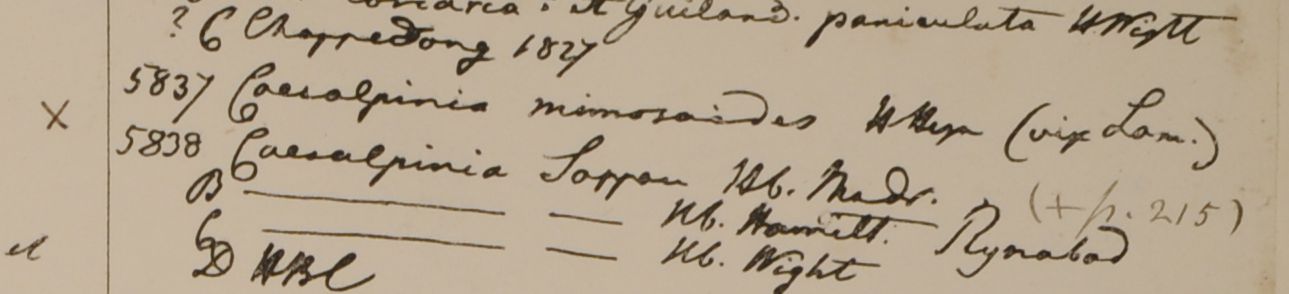 Guiland. paniculata H Wight
? C Chappedong 1827
5837 Caesalpinia mimosoides H Heyn (vix Lam.)
X
5838 Caesalpinia Sappan Hb. Madr.
(+ p. 215)
B — — Hb. Hamilt. Rynabad
C — — Hb. Wight
D HBC